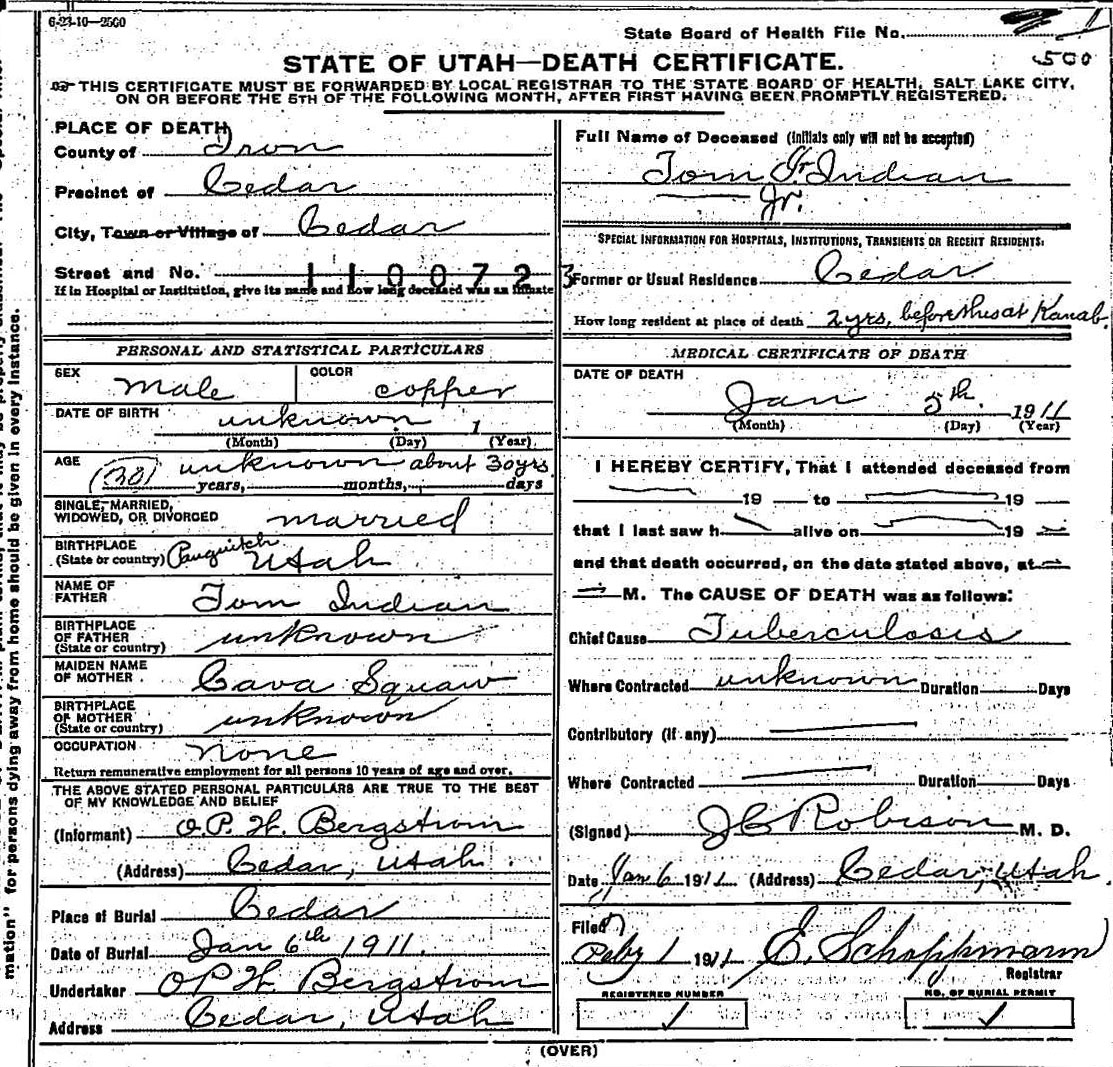 6-23-10—2500
State Board of Health File No. 1
500
STATE OF UTAH—DEATH CERTIFICATE.
THIS CERTIFICATE MUST BE FORWARDED BY LOCAL REGISTRAR TO THE STATE BOARD OF HEALTH, SALT LAKE CITY,
ON OR BEFORE THE 5TH OF THE FOLLOWING MONTH, AFTER FIRST HAVING BEEN PROMPTLY REGISTERED.
PLACE OF DEATH
County of Iron
Precinct of Cedar
City, Town or Village of Cedar
Street and No.
1100723
If in Hospital or Institution, give its name and how long deceased was an inmate
PERSONAL AND STATISTICAL PARTICULARS
SEX Male COLOR copper
DATE OF BIRTH unknown 1
(Month) (Day) (Year)
AGE (30) unknown about 30 yrs
years, months, days
SINGLE, MARRIED,
WIDOWED, OR DIVORCED married
BIRTHPLACE
(State or country) Panguitch Utah
NAME OF
FATHER Tom Indian
BIRTHPLACE
OF FATHER
(State or country) unknown
MAIDEN NAME
OF MOTHER Cava Squaw
BIRTHPLACE
OF MOTHER
(State or country) unknown
OCCUPATION none
Return remunerative employment for all persons 10 years of age and over.
THE ABOVE STATED PERSONAL PARTICULARS ARE TRUE TO THE BEST
OF MY KNOWLEDGE AND BELIEF
(Informant) O.P.W. Bergstrom
(Address) Cedar, Utah.
Place of Burial Cedar
Date of Burial Jan 6th 1911.
Undertaker OPW. Bergstrom
Address Cedar, Utah
Full Name of Deceased (initials only will not be accepted)
Tom Jr. Indian
Jr.
SPECIAL INFORMATION FOR HOSPITALS, INSTITUTIONS, TRANSIENTS OR RECENT RESIDENTS:
Former or Usual Residence Cedar
How long resident at place of death 2 yrs, before this at Kanab
MEDICAL CERTIFICATE OF DEATH
DATE OF DEATH
Jan 5th. 1911
(Month) (Day) (Year)
I HEREBY CERTIFY, That I attended deceased from
19 to 19
that I last saw h alive on 19
and that death occurred, on the date stated above, at
M. The CAUSE OF DEATH was as follows:
Chief Cause Tuberculosis
Where Contracted unknown Duration Days
Contributory (if any)
Where Contracted Duration Days
(Signed) J C Robison M. D.
Date Jan 6 1911 (Address) Cedar, Utah.
Filed
Feby 1 1911 E. Schoppmann
Registrar
REGISTERED NUMBER
1
NO. OF BURIAL PERMIT
1
(OVER)
mation" for persons dying away from home should be given in every instance.